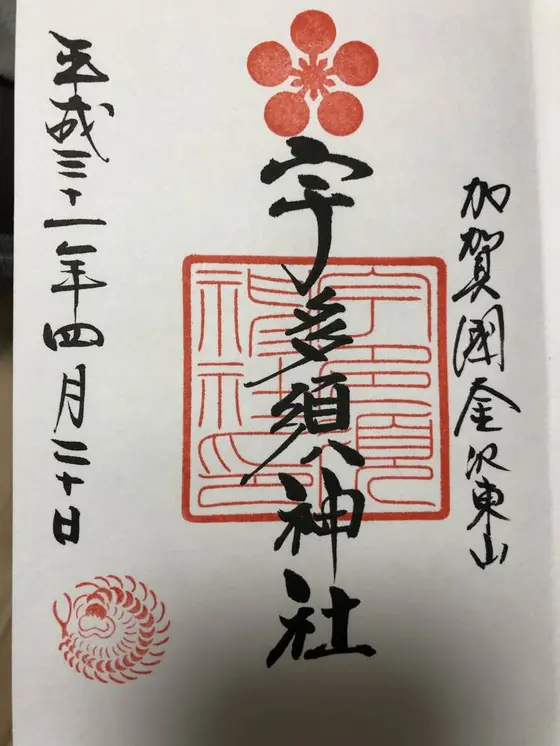 加賀國金沢東山
宇多須神社
宇多須神社印
平成三十一年四月二十日